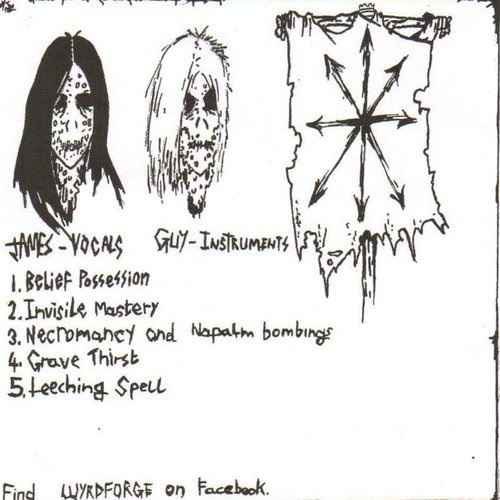 JAMES - VOCALS
GUY - INSTRUMENTS
1. Belief Possession
2. Invisile Mastery
3. Necromancy and Napalm bombings
4. Grave Thirst
5. Leeching Spell
Find WYRDFORGE on Facebook.